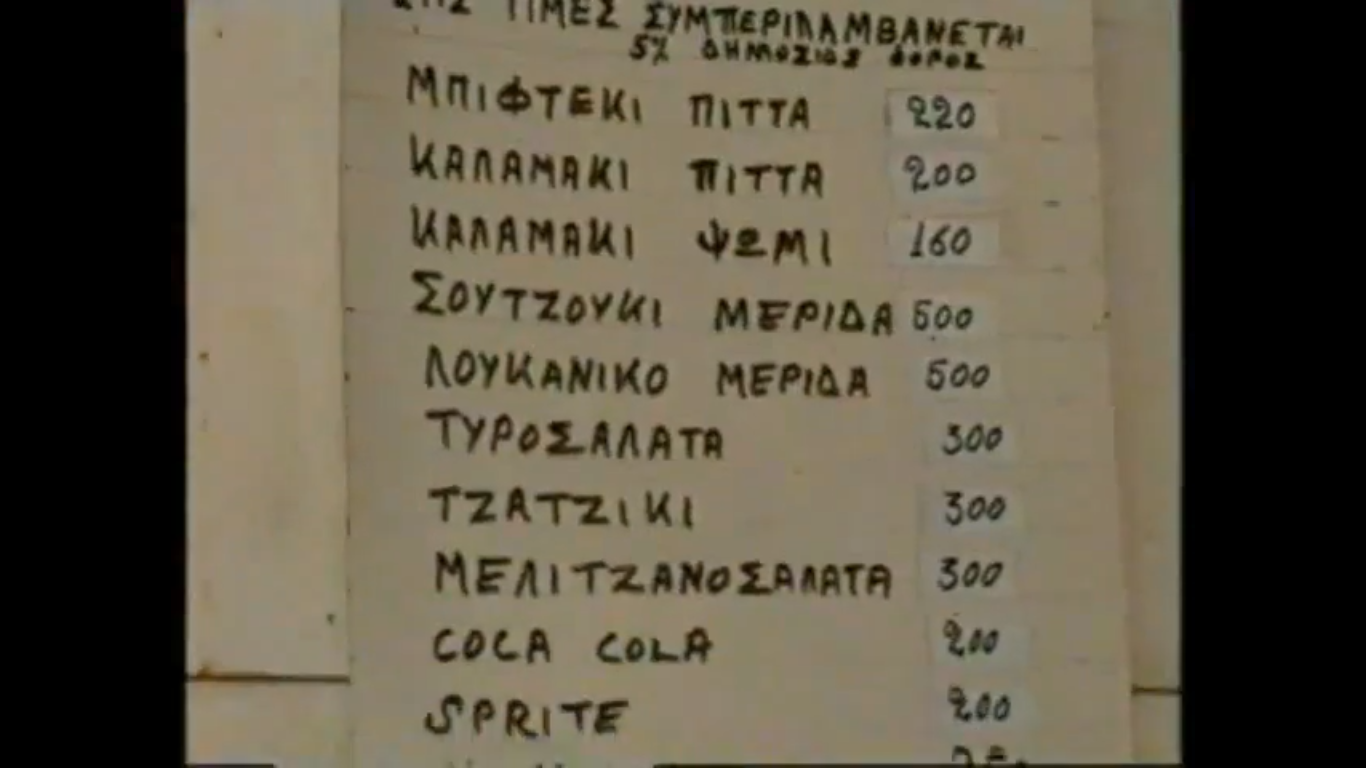 ΤΙΜΕΣ ΣΥΜΠΕΡΙΛΑΜΒΑΝΕΤΑΙ
5% ΔΗΜΟΣΙΟΣ ΦΟΡΟΣ
ΜΠΙΦΤΕΚΙ ΠΙΤΤΑ 220
ΚΑΛΑΜΑΚΙ ΠΙΤΤΑ 200
ΚΑΛΑΜΑΚΙ ΨΩΜΙ 160
ΣΟΥΤΖΟΥΚΙ ΜΕΡΙΔΑ 500
ΛΟΥΚΑΝΙΚΟ ΜΕΡΙΔΑ 500
ΤΥΡΟΣΑΛΑΤΑ 300
ΤΖΑΤΖΙΚΙ 300
ΜΕΛΙΤΖΑΝΟΣΑΛΑΤΑ 300
COCA COLA 200
SPRITE 200